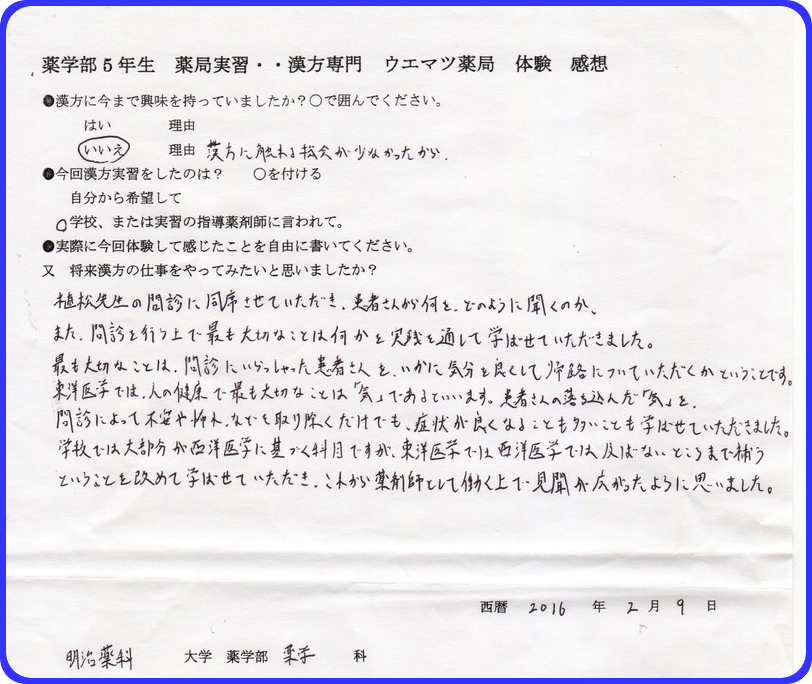 薬学部5年生　薬局実習・・漢方専門　ウエマツ薬局　体験　感想
●漢方に今まで興味を持っていましたか？〇で囲んでください。
はい　理由
いいえ　理由　漢方に触れる機会が少なかったから.
●今回漢方実習をしたのは？　〇を付ける
自分から希望して
○学校、または実習の指導薬剤師に言われて。
●実際に今回体験して感じたことを自由に書いてください。
又　将来漢方の仕事をやってみたいと思いましたか？
植松先生の問診に同席させていただき、患者さんが何を、どのように聞くのか、
また、問診を行う上で最も大切なことは何かを実践を通して学ばせていただきました。
最も大切なことは、問診にいらっしゃった患者さんを、いかに気分を良くして帰路についていただくかということです。
東洋医学では、人の健康で最も大切なことは「気」であるといいます。患者さんの落ち込んだ「気」を、
問診によって不安や怖れ、などを取り除くだけでも、症状が良くなることも多いことも学ばせていただきました。
学校では大部分が西洋医学に基づく科目ですが、東洋医学では西洋医学では及ばないところまで補う
ということを改めて学ばせていただき、これから薬剤師として働く上で見聞が広がったように思いました。
西暦　2016　年　2月　9　日
明治薬科　大学　薬学部　薬学　科